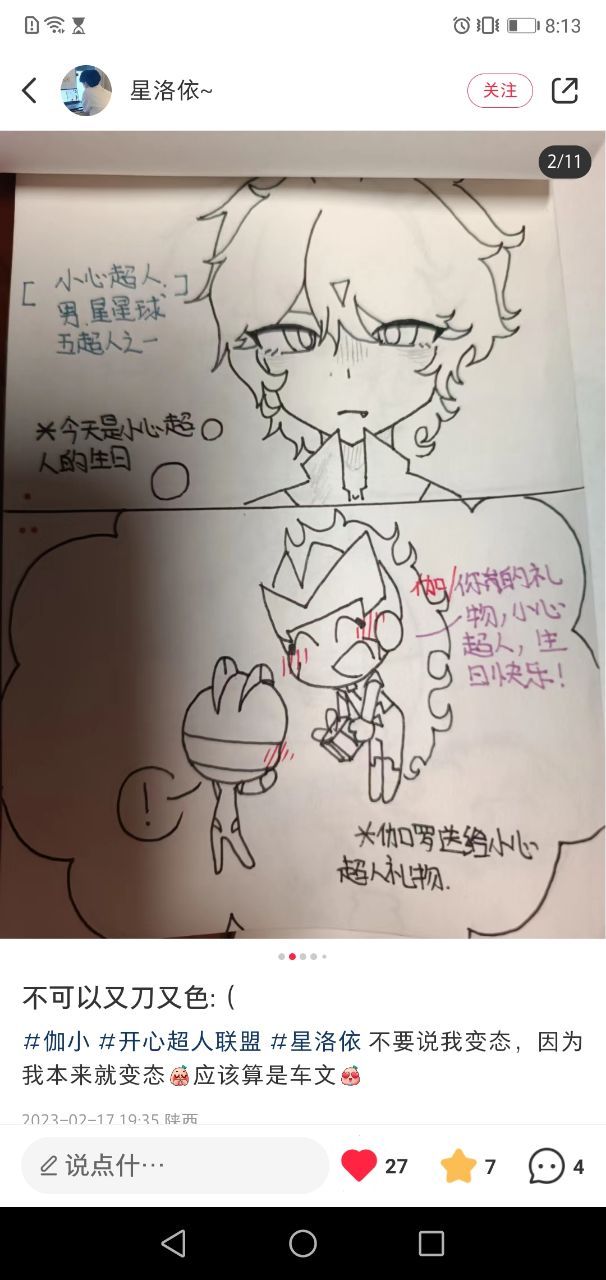 8:13
星洛依~
关注
2/11
[小心超人.]
男.星星球
五超人之一
*今天是小心超
人的生日
伽/你有的礼
物,小心
超人,生
日快乐!
!
*伽罗送给小心
超人礼物.
不可以又刀又色:（
#伽小 #开心超人联盟 #星洛依 不要说我变态，因为
我本来就变态应该算是车文
2023-02-17 19:35 陕西
说点什…
27
7
4